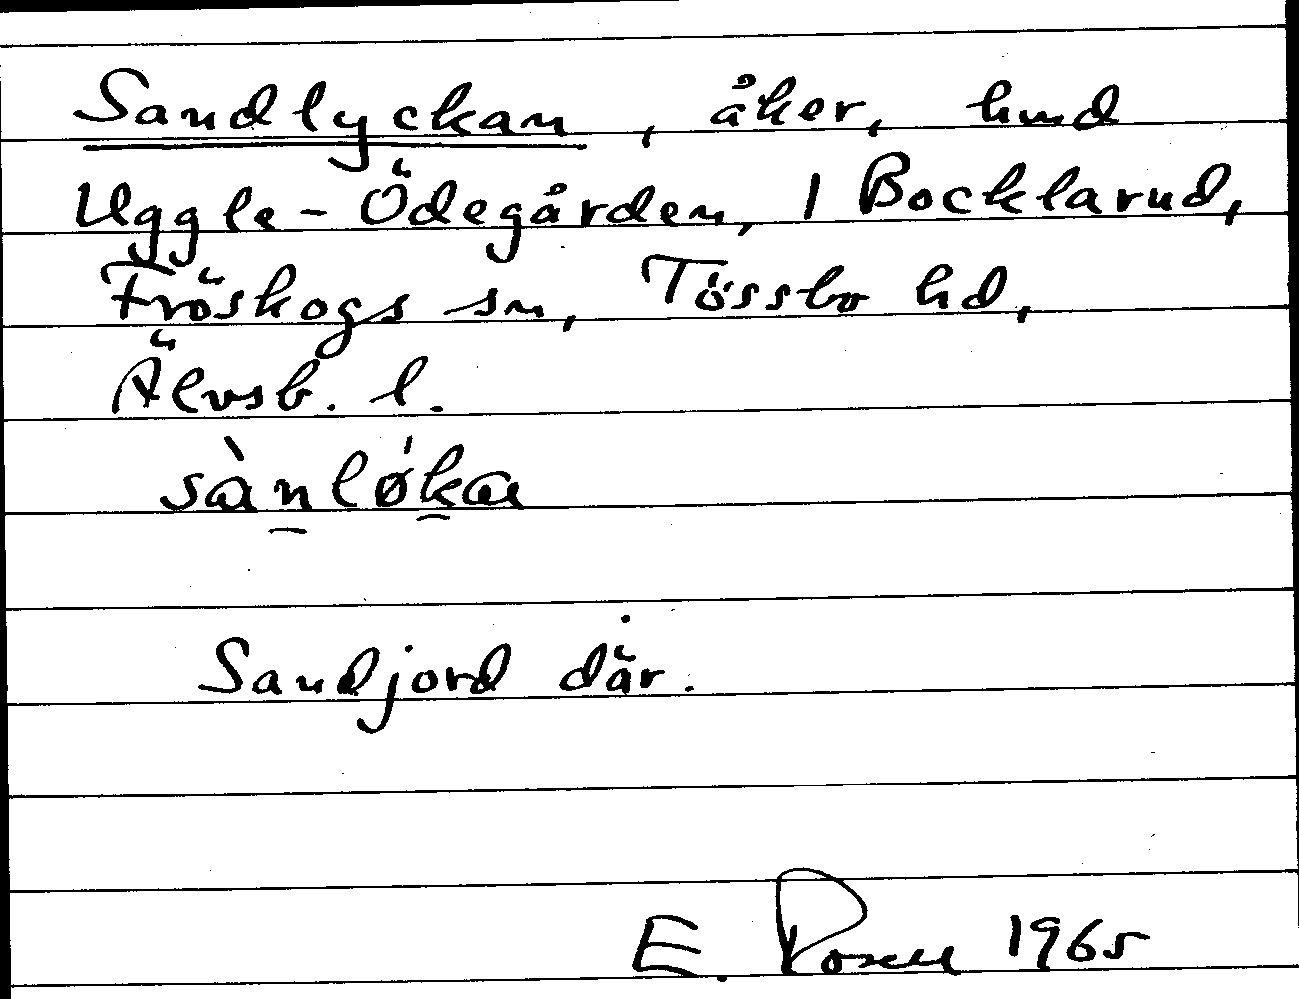 Sandlyckan, åker, hmd
Uggle-Ödegården, 1 Bocklarud,
Fröskogs sn, Tössbo hd,
Älvsb. l.
sànlǿka
Sandjord där.
E. Rosell 1965